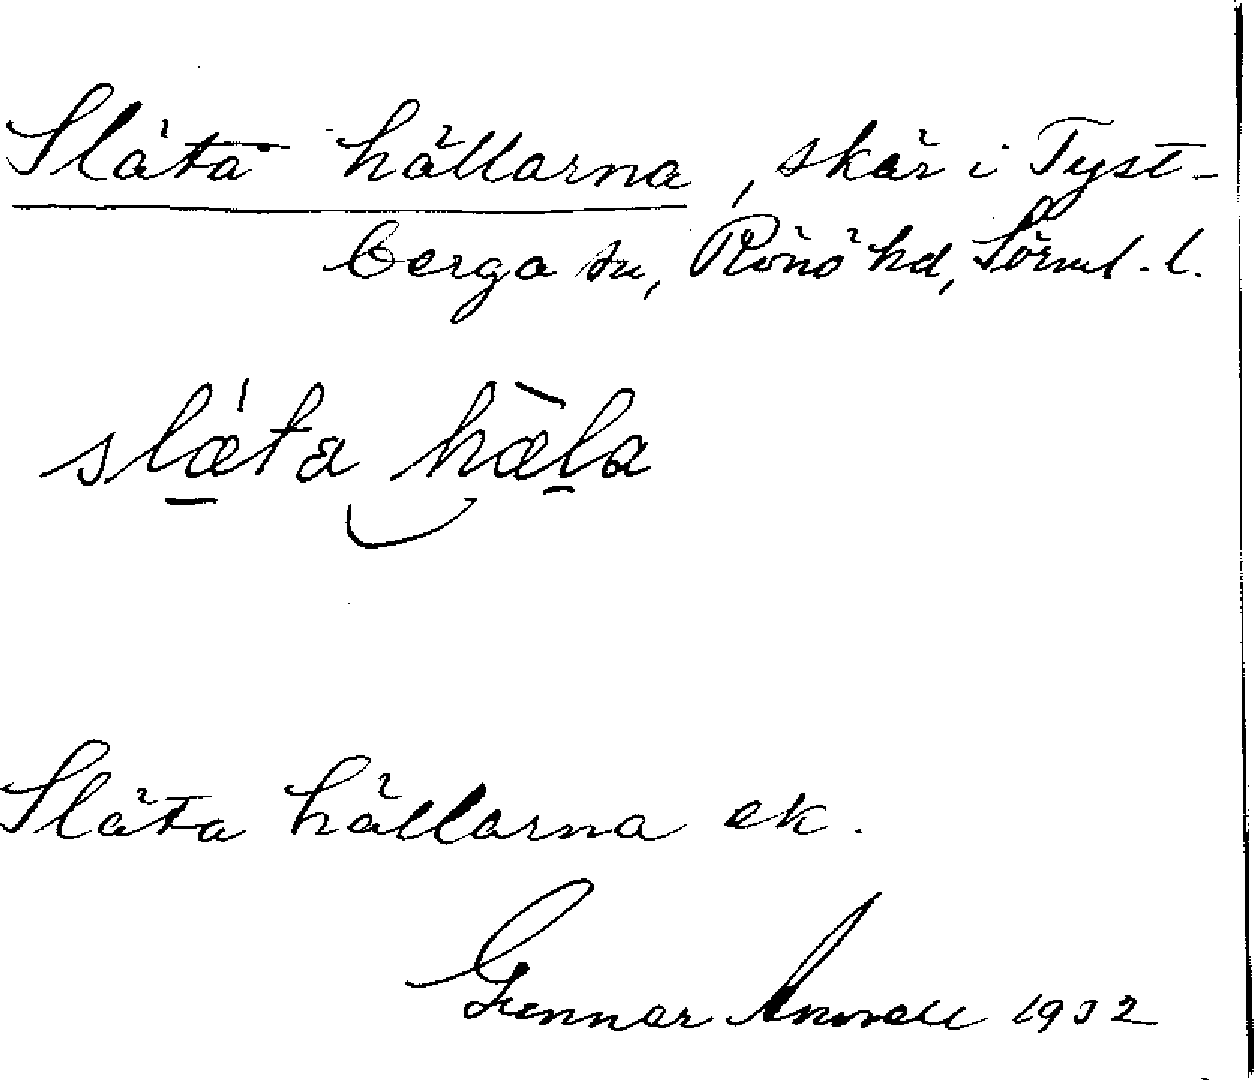 Släta hällarna, skär i Tyst-
berga sn, Rönö hd, Sörml. l.
slæta hæla
Släta hällarna ek.
Gunnar 1932